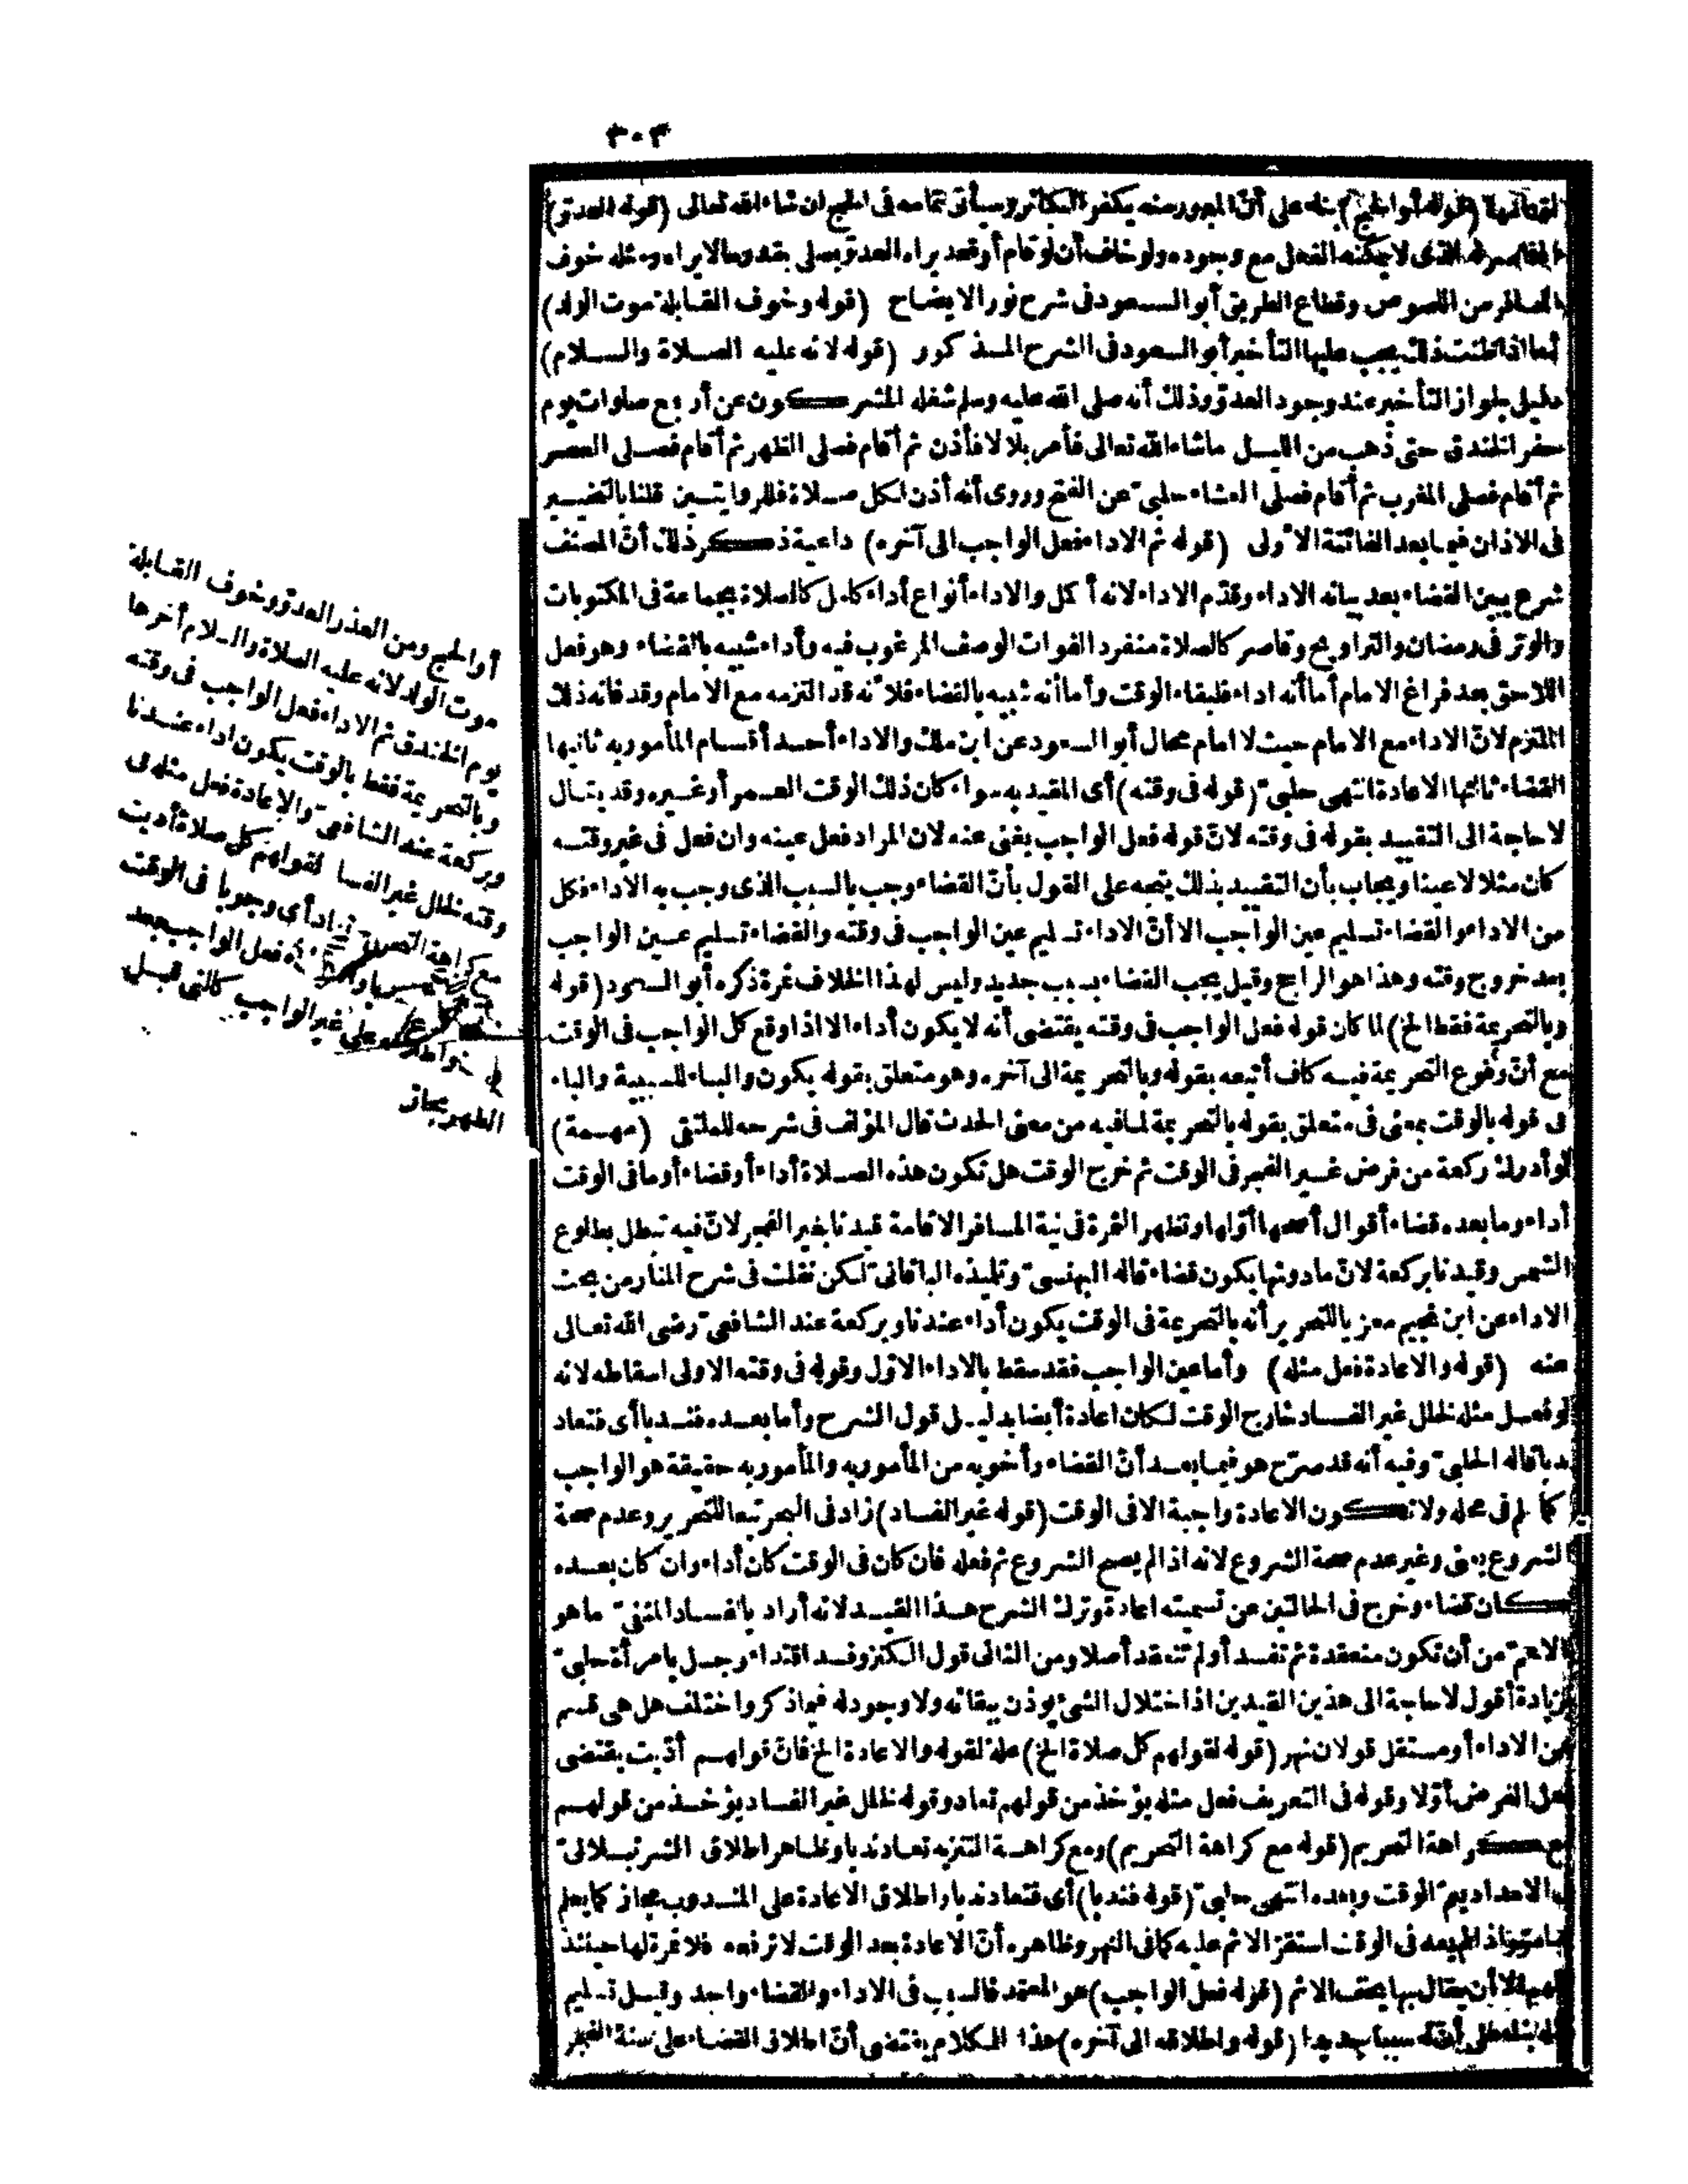 ٣٠٣
(قوله أو الحج) بناء على أنّ المبرور منه يكفر الكبائر وسيأتى تمامه فى الحج ان شاء الله تعالى (قوله العدو)
الذى لا يمكنه الفعل مع وجوده ولو خاف أن لو قام أو قعد يراه العدو يصلى بقدر ما لا يراه ومثله خوف
المسافر من اللصوص وقطاع الطريق أبو السعود فى شرح نور الايضاح (قوله وخوف القابلة موت الولد)
أما اذا ظنت ذلك يجب عليها التأخير أبو السعود فى الشرح المذكور (قوله لانه عليه الصلاة والسلام)
دليل لجواز التأخير عند وجود العدو وذلك أنه صلى الله عليه وسلم شغله المشركون عن أربع صلوات يوم
حفر الخندق حتى ذهب من الليل ما شاء الله تعالى فأمر بلالا فأذن ثم أقام فصلى الظهر ثم أقام فصلى العصر
ثم أقام فصلى المغرب ثم أقام فصلى العشاء حلبىّ عن الفتح وروى أنه أذن لكل صلاة فللروايتين قلنا بالتخيير
فى الاذان فيما بعد الفائتة الاولى (قوله ثم الاداء فعل الواجب الى آخره) داعية ذكر ذلك أنّ المصنف
شرع يبين القضاء بعد بيانه الاداء وقدّم الاداء لانه أكمل والاداء أنواع أداء كامل كالصلاة بجماعة فى المكتوبات
والوتر فى رمضان والتراويح وقاصر كالصلاة منفردا لفوات الوصف المرغوب فيه وأداء شبيه بالقضاء وهو فعل
اللاحق بعد فراغ الامام أما أنه اداء فلبقاء الوقت وأما أنه شبيه بالقضاء فلانه قد التزمه مع الامام وقد فاته ذلك
الملتزم لانّ الاداء مع الامام حيث لا امام محال أبو السعود عن ابن ملك والاداء أحد أقسام المأمور به ثانيها
القضاء ثالثها الاعادة انتهى حلبىّ (قوله فى وقته) أى المقيد به سواء كان ذلك الوقت العمر أو غيره وقد يقال
لا حاجة الى التقييد بقوله فى وقته لانّ قوله فعل الواجب يغنى عنه لان المراد فعل عينه وان فعل فى غير وقته
كان مثلا لا عينا ويجاب بأن التقييد بذلك يتجه على القول بأنّ القضاء وجب بالسبب الذى وجب به الاداء فكل
من الاداء والقضاء تسليم عين الواجب الا أنّ الاداء تسليم عين الواجب فى وقته والقضاء تسليم عين الواجب
بعد خروج وقته وهذا هو الراجح وقيل يجب القضاء بسبب جديد وليس لهذا الخلاف ثمرة ذكره أبو السعود (قوله
وبالتحريمة فقط الخ) لما كان قوله فعل الواجب فى وقته يقتضى أنه لا يكون أداء الا اذا وقع كل الواجب فى الوقت
مع أنّ وقوع التحريمة فيه كاف أتبعه بقوله وبالتحريمة الى آخره وهو متعلق بقوله يكون والباء للسببية والباء
فى قوله بالوقت بمعنى فى متعلق بقوله بالتحريمة لما فيه من معنى الحدث قال المؤلف فى شرحه للملتقى (مهمة)
لو أدرك ركعة من فرض غير الفجر فى الوقت ثم خرج الوقت هل تكون هذه الصلاة أداء أو قضاء أو ما فى الوقت
أداء وما بعده قضاء أقوال أصحها أوّلها وتظهر الثمرة فى نية المسافر الاقامة قيدنا بغير الفجر لانّ فيه تبطل بطلوع
الشمس وقيدنا بركعة لانّ ما دونها يكون قضاء قاله البهنسىّ وتلميذه الباقانىّ لكن نقلت فى شرح المنار من بحث
الاداء عن ابن نجيم معز يا للتحرير أنه بالتحريمة فى الوقت يكون أداء عندنا وبركعة عند الشافعىّ رضى الله تعالى
عنه (قوله والاعادة فعل مثله) وأما عين الواجب فقد سقط بالاداء الاوّل وقوله فى وقته الاولى اسقاطه لانه
لو فعل مثله لخلل غير الفساد خارج الوقت لكان اعادة أيضا بدليل قول الشرح وأما بعده فندبا أى فتعاد
ندبا قاله الحلبىّ وفيه أنه قد صرّح هو فيما بعد أنّ القضاء وأخويه من المأمور به والمأمور به حقيقة هو الواجب
كما علم فى محله ولا تكون الاعادة واجبة الا فى الوقت (قوله غير الفساد) زاد فى البحر تبعا للتحرير وعدم صحة
الشروع يعنى وغير عدم صحة الشروع لانه اذا لم يصح الشروع ثم فعله فان كان فى الوقت كان أداء وان كان بعده
كان قضاء وخرج فى الحالتين عن تسميته اعادة وترك الشرح هذا القيد لانه أراد بالفساد المنفىّ ما هو
الاعمّ من أن تكون منعقدة ثم تفسد أو لم تنعقد أصلا ومن الثانى قول الكنز وفسد اقتداء رجل بامرأة حلبىّ
بزيادة أقول لا حاجة الى هذين القيدين اذ اختلال الشئ يؤذن ببقائه ولا وجود له فيما ذكروا ختلف هل هى قسم
من الاداء أو مستقل قولان نهر (قوله لقولهم كل صلاة الخ) علة لقوله والاعادة الخ فانّ قولهم أدّيت يقتضى
فعل الفرض أوّلا وقوله فى التعريف فعل مثله يؤخذ من قولهم تعاد وقوله لخلل غير الفساد يؤخذ من قولهم
مع كراهة التحريم (قوله مع كراهة التحريم) ومع كراهة التنزيه تعاد ندبا وظاهر اطلاق الشرنبلالىّ
الوقت وبعده انتهى حلبىّ (قوله فندبا) أى فتعاد ندبا واطلاق الاعادة على المندوب مجاز كما يعلم
فى الوقت استقرّ الاثم عليه كما فى النهر وظاهره أنّ الاعادة بعد الوقت لا ترفعه فلا ثمرة لها حينئذ
اللهم الا أن يقال بها يخف الاثم (قوله فعل الواجب) هو المعتمد فالسبب فى الاداء والقضاء واحد وقيل تسليم
مثله بناء على أنّ له سببا جديدا (قوله واطلاقه الى آخره) هذا الكلام يقتضى أنّ اطلاق القضاء على سنة الفجر
أو الحج ومن العذر العدو وخوف القابلة
موت الولد لانه عليه الصلاة والسلام أخرها
يوم الخندق ثم الاداء فعل الواجب فى وقته
وبالتحريمة فقط بالوقت يكون اداء عندنا
وبركعة عند الشافعىّ والاعادة فعل مثله فى
وقته لخلل غير الفسا لقولهم كل صلاة أديت
مع كراهة التحريم تعاد أى وجوبا فى الوقت
فعل الواجب بعد
على غير الواجب كالتى قبل
الظهر مجاز